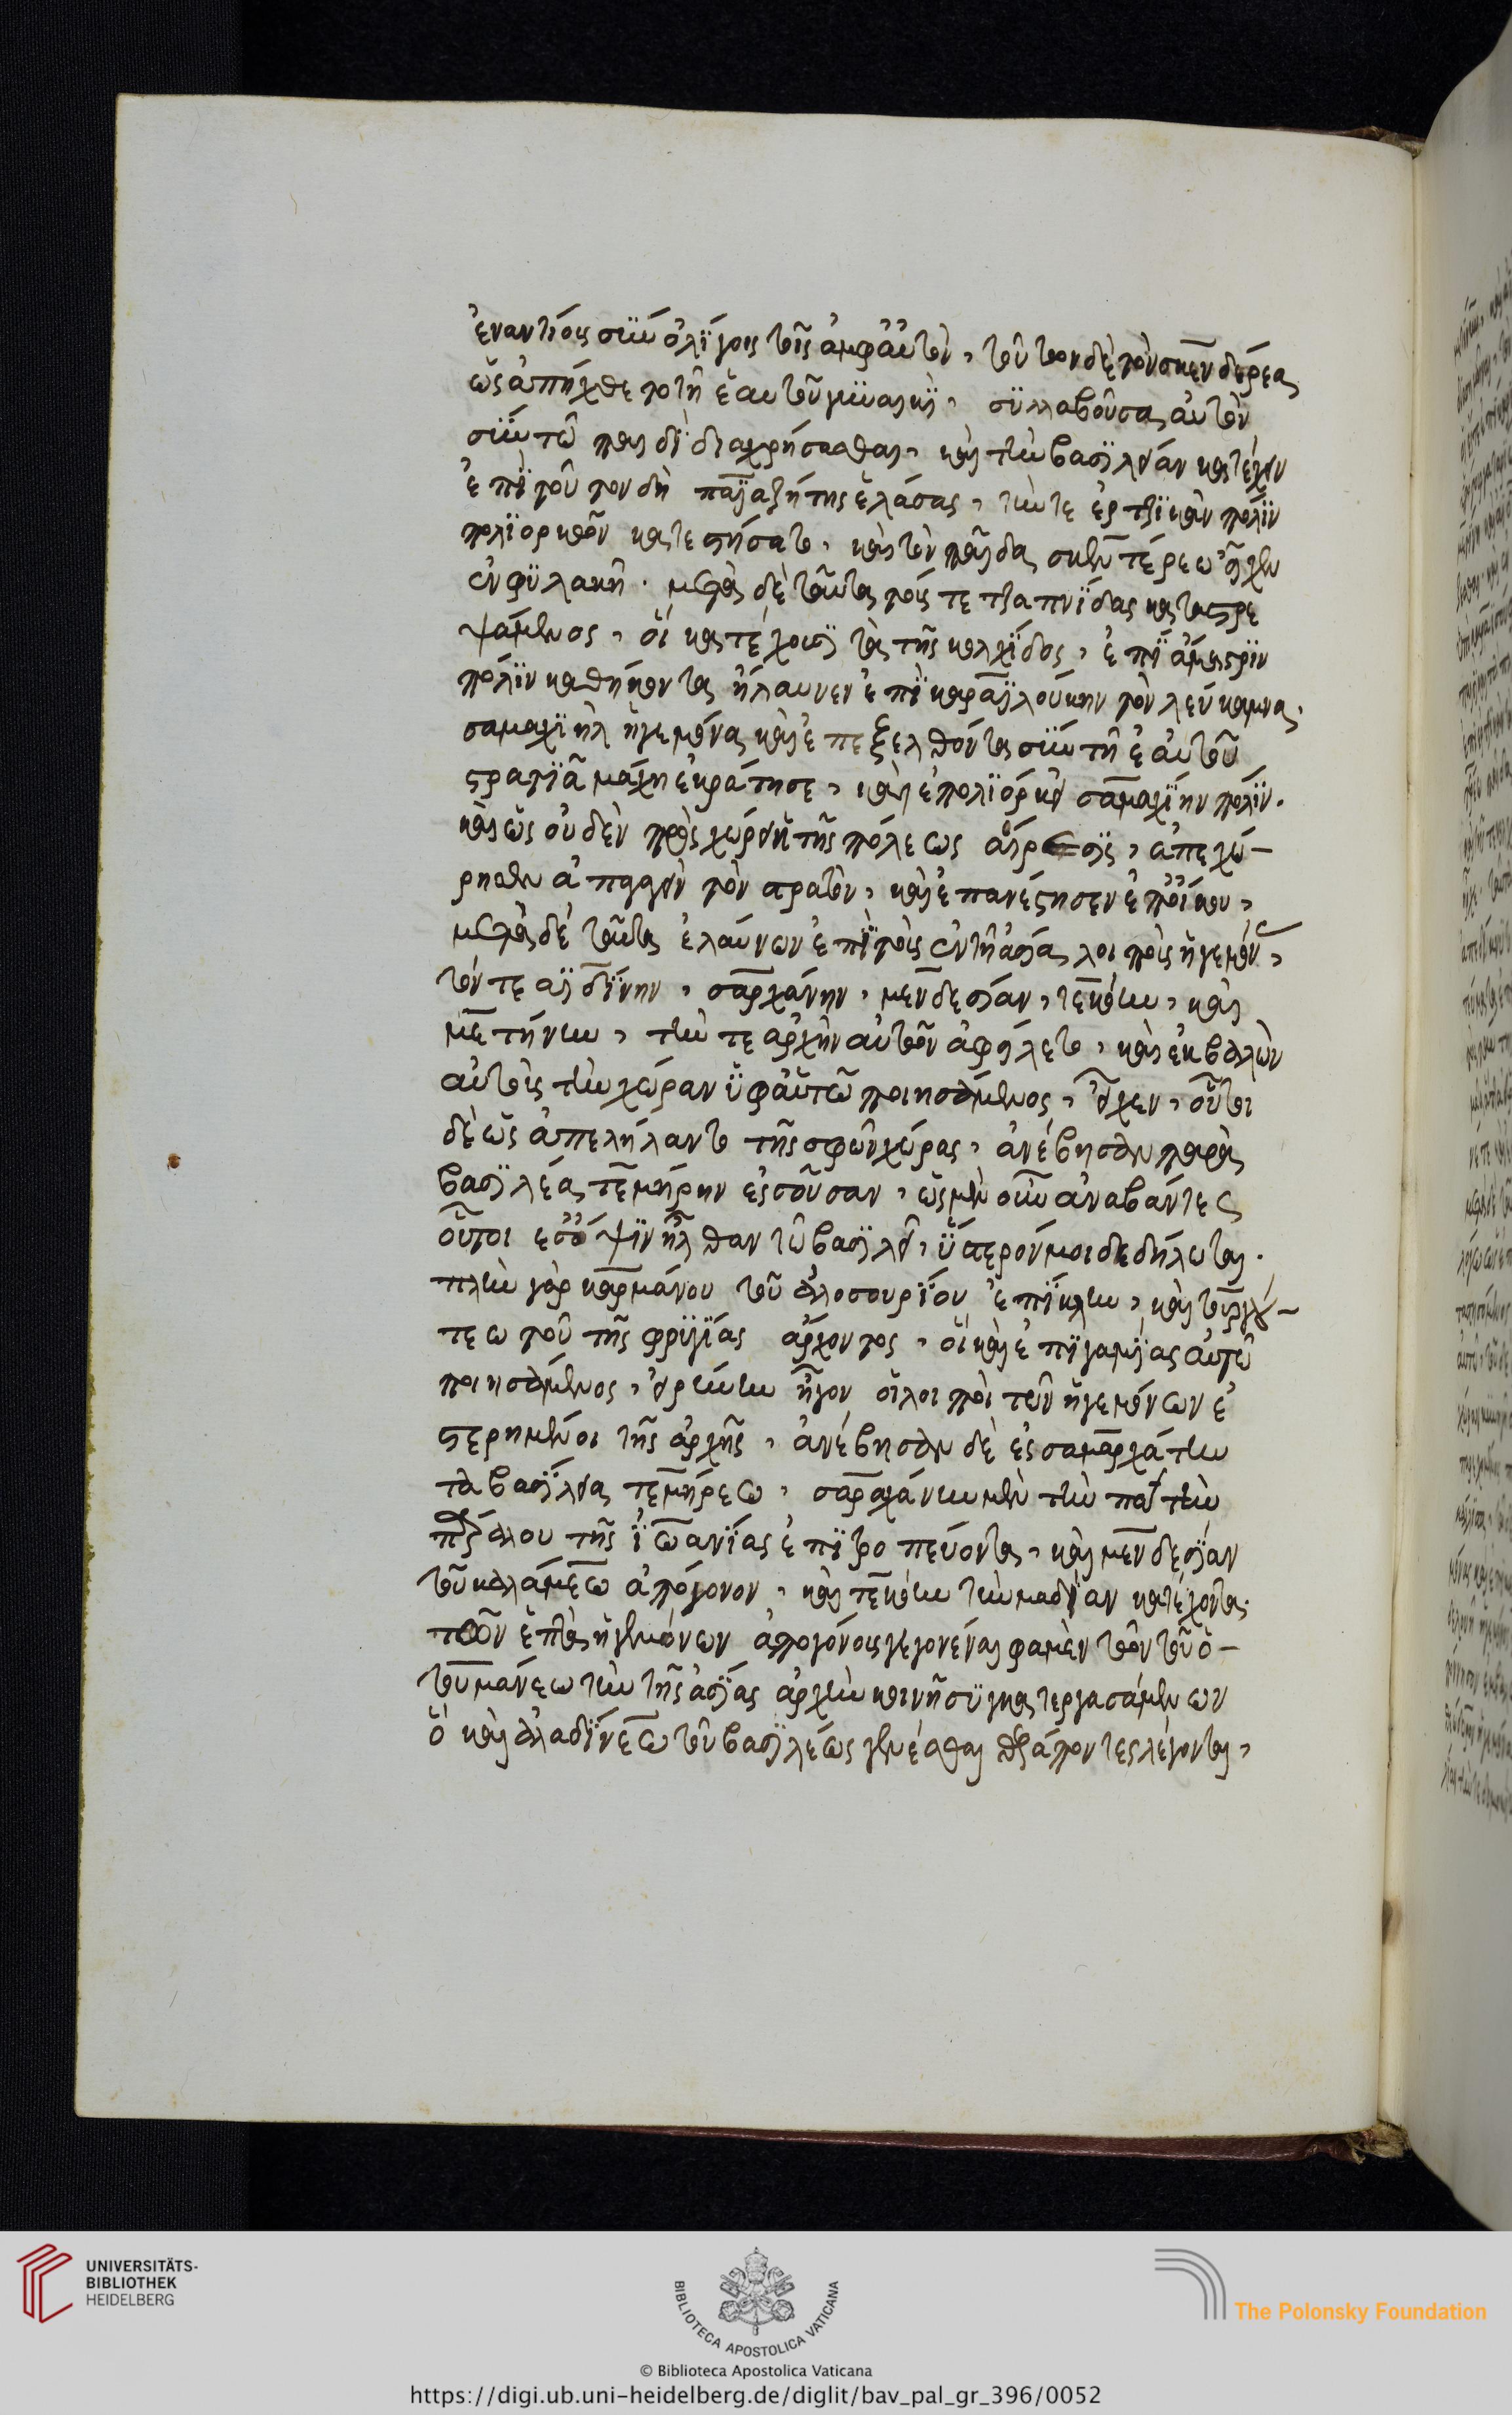 ἐναντίοις σὺν ὀλίγοις τοῖς ἀμφ' αὐτόν, τοῦτον δὲ τὸν σκενδέρεα
ὡς ἀπήχθετο τῇ ἑαυτοῦ γυναικὶ, συλλαβοῦσα αὐτὸν
σὺν τῷ παιδὶ διαχρήσασθαι, καὶ τὴν βασιλείαν κατέχειν
ἐπὶ τοῦτον δὴ παϊαζήτης ἐλάσας, τήν τε ἐρτζικὰν πόλιν
πολιορκῶν κατεστήσατο, καὶ τὸν παῖδα σκεντέρεω εἶχεν
ἐν φυλακῇ. μετὰ δὲ ταῦτα τούς τε τζαπνίδας καταστρε
ψάμενος, οἳ κατέχουσι τὰ τῆς κολχίδος, ἐπὶ ἄμαστριν
πόλιν καθήκοντα ἤλαυνεν ἐπὶ καραϊλούκην τὸν λευκαμνα.
σαμαχιὴλ ἡγεμόνα καὶ ἐπεξελθόντα σὺν τῇ ἑαυτοῦ
στρατιᾷ μάχῃ ἐκράτησε, καὶ ἐπολιόρκει σαμαχίην πόλιν.
καὶ ὡς οὐδὲν προὐχώρει ἡ τῆς πόλεως αἵρεσις, ἀπεχώ-
ρησεν ἀπαγαγὼν τὸν στρατόν, καὶ ἐπανέζησεν ἐπ' οἴκου,
μετὰ δὲ ταῦτα ἐλαύνων ἐπὶ τοὺς ἐν τῇ ἀσίᾳ λοιποὺς ἡγεμόν,
τόν τε αϊδίνην, σαρχάνην, μενδεσίαν, τεκίην, καὶ
μετήνην, τήν τε ἀρχὴν αὐτῶν ἀφείλετο, καὶ ἐκβαλὼν
αὐτοὺς τὴν χώραν ὑφ' αὑτῷ ποιησάμενος, εἶχεν, οὗτοι
δὲ ὡς ἀπελήλαντο τῆς σφῶν χώρας, ἀνέβησαν παρὰ
βασιλέα τεμήρην ἐς σοῦσαν, ὡς μὲν οὖν ἀναβάντες
οὗτοι ἐς ὄψιν ἦλθον τῷ βασιλεῖ, ὕστερόν μοι δεδήλωται.
πλὴν γὰρ καρμάνου τοῦ ἀλοσουρίου ἐπίκλην, καὶ τουργά-
τεω τοῦ τῆς φρυγίας ἄρχοντος, οἳ καὶ ἐπιγαμίας αὐτῷ
ποιησάμενος, εἰρήνην ἦγον οἱ λοιποὶ τῶν ἡγεμόνων ἐ
στερημένοι τῆς ἀρχῆς, ἀνέβησαν δὲ ἐς σαμαρχάτην
τὰ βασίλεια τεμήρεω, σαρχάνην μὲν τὴν πα τὴν
πάραλον τῆς ἰωανίας ἐπιτροπεύοντα, καὶ μενδεσίαν
τοῦ καλάμεω ἀπόγονον, καὶ τεκίην τὴν μαδίαν κατέχοντα.
τῶν ἑπτὰ ἡγεμόνων ἀπογόνους γεγονέναι φαμὲν τῶν τοῦ ὀ-
τουμάνεω τὴν τῆς ἀσίας ἀρχὴν κοινῇ συγκατεργασαμένων
οἳ καὶ ἀλαδίνεω τοῦ βασιλέως γενέσθαι θεράποντες λέγονται,
UNIVERSITÄTS-
BIBLIOTHEK
HEIDELBERG
BIBLIOTECA APOSTOLICA VATICANA
The Polonsky Foundation
© Biblioteca Apostolica Vaticana
https://digi.ub.uni-heidelberg.de/diglit/bav_pal_gr_396/0052